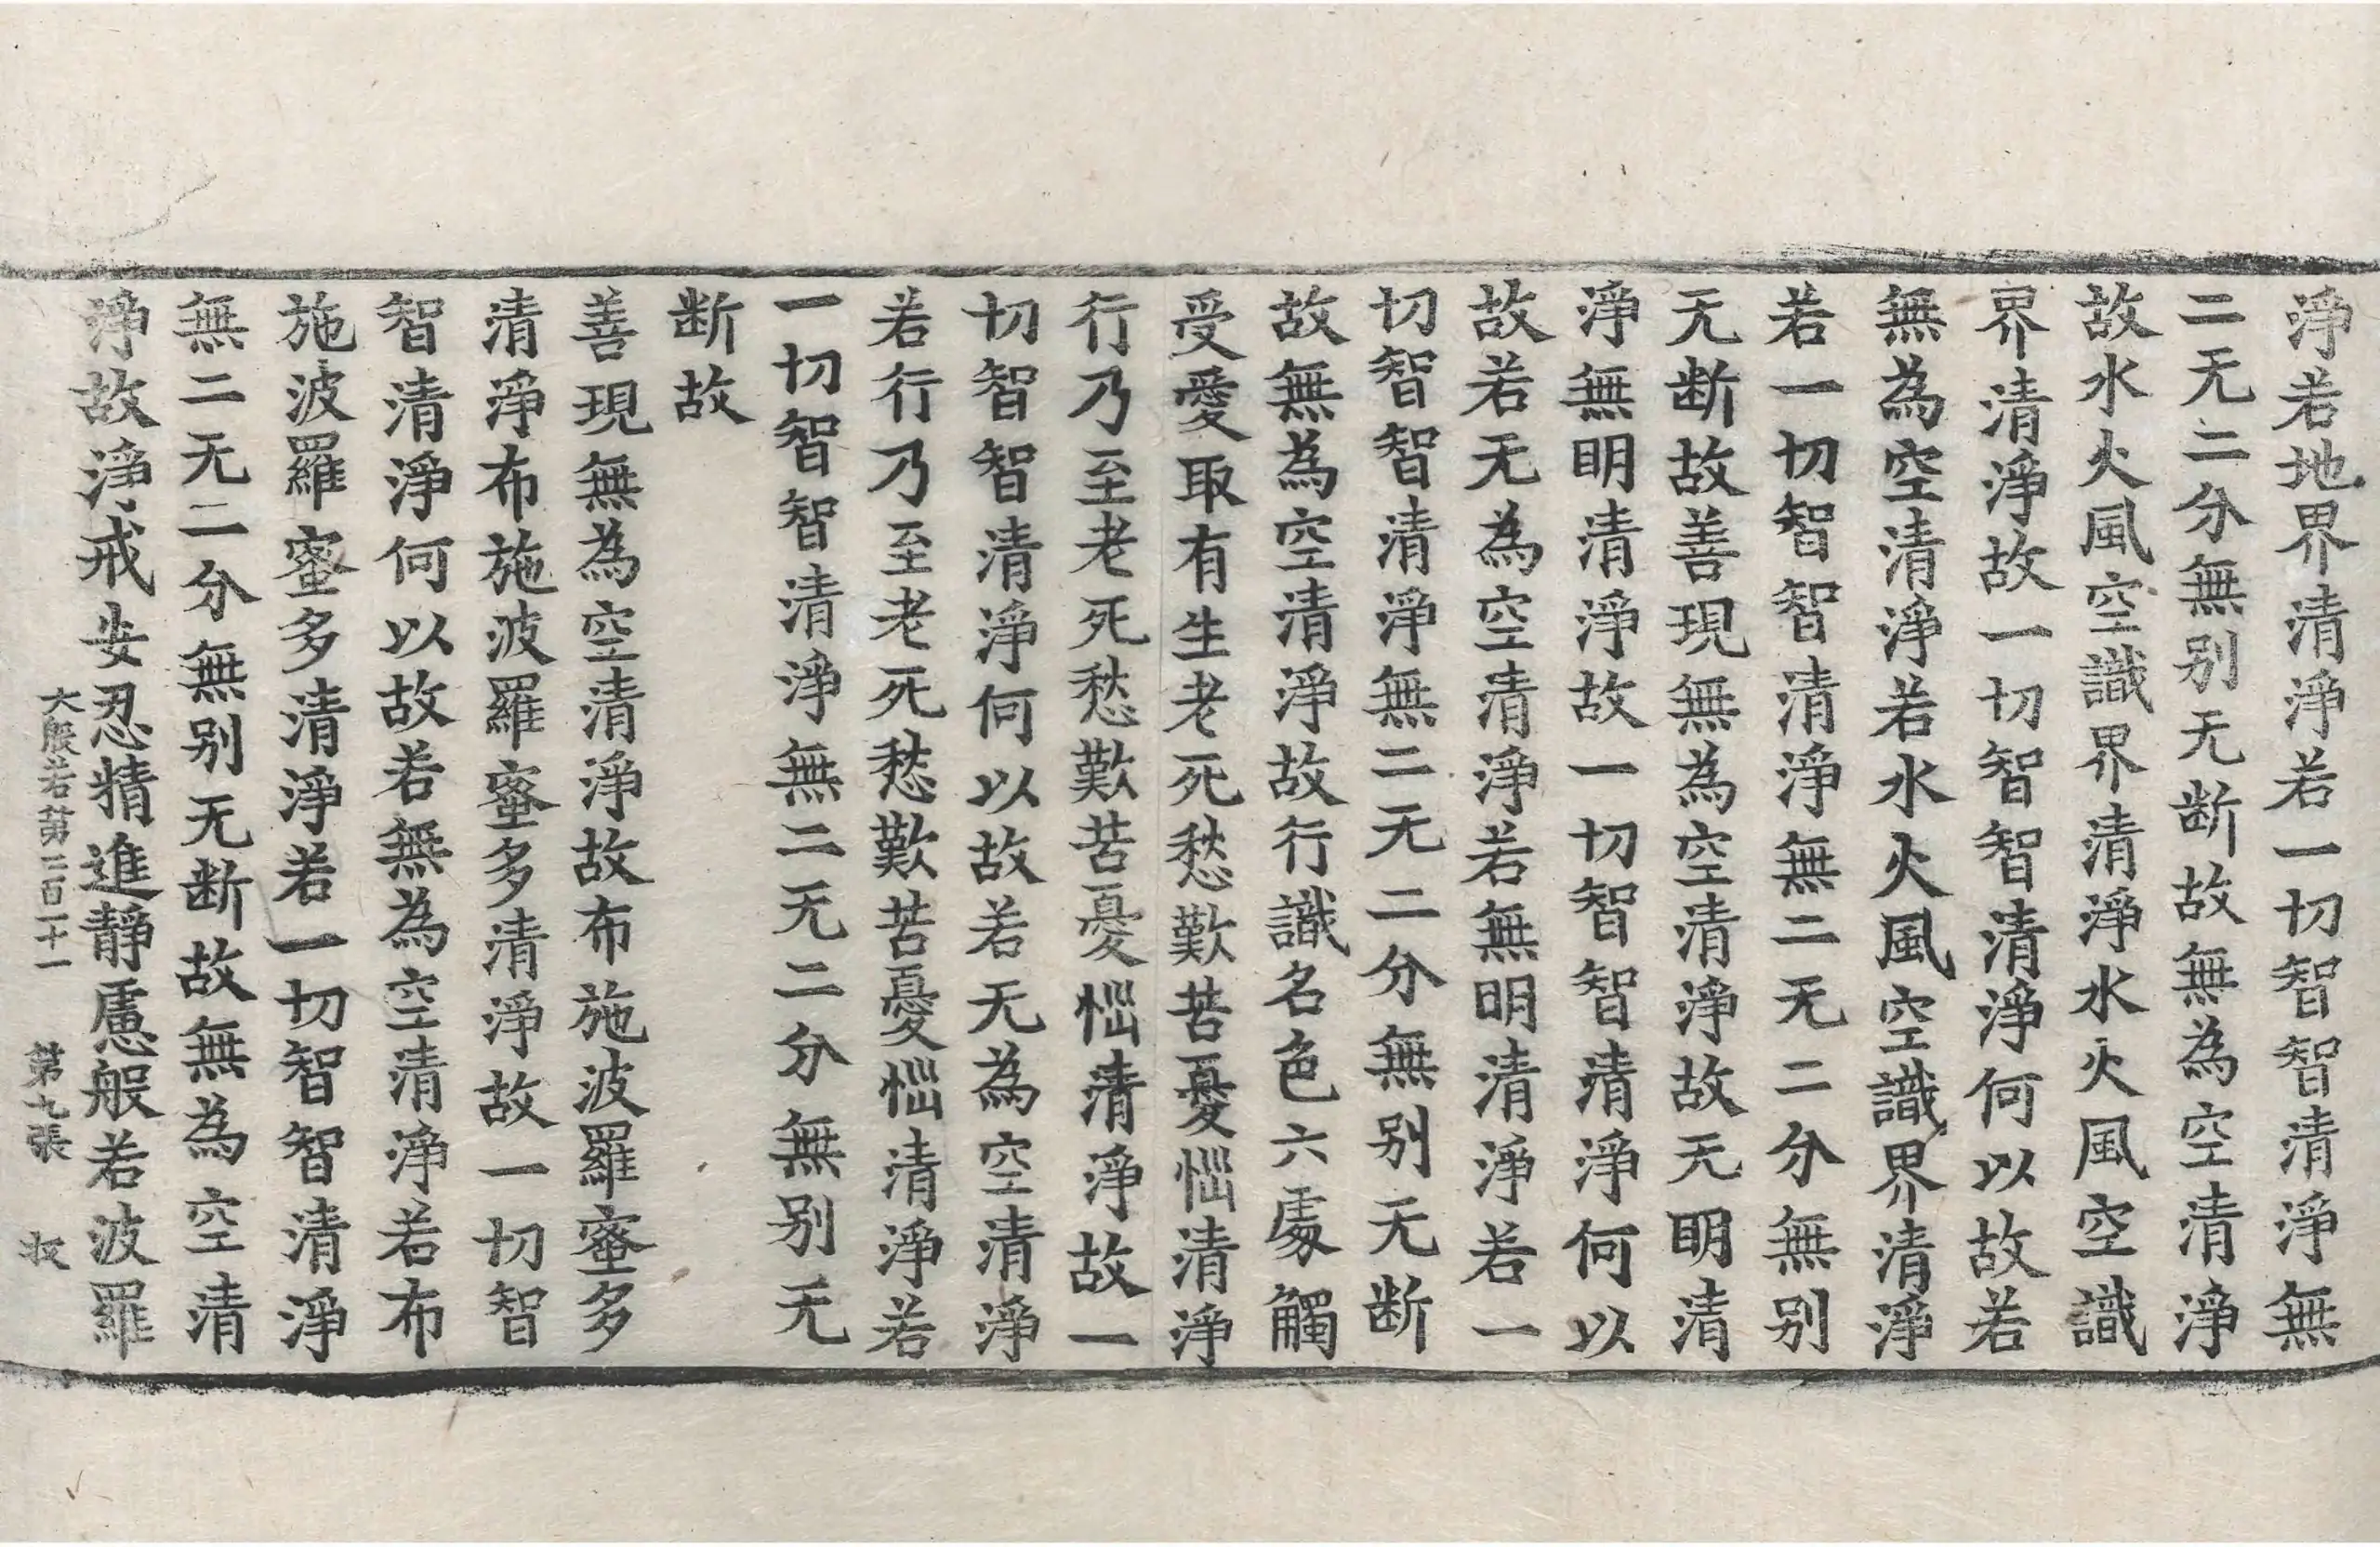 淨若地界清淨若一切智智清淨無
二无二分無别无断故無為空清淨
故水火風空識界清淨水火風空識
界清淨故一切智智清淨何以故若
無為空清淨若水火風空識界清淨
若一切智智清淨無二无二分無别
无断故善現無為空清淨故无明清
淨無明清淨故一切智智清淨何以
故若无為空清淨若無明清淨若一
切智智清淨無二无二分無别无断
故無為空清淨故行識名色六處觸
受愛取有生老死愁歎苦憂惱清淨
行乃至老死愁歎苦憂惱清淨故一
切智智清淨何以故若无為空清淨
若行乃至老死愁歎苦憂惱清淨若
一切智智清淨無二无二分無别无
断故
善現無為空清淨故布施波羅蜜多
清淨布施波羅蜜多清淨故一切智
智清淨何以故若無為空清淨若布
施波羅蜜多清淨若一切智智清淨
無二无二分無别无断故無為空清
淨故淨戒安忍精進靜慮般若波羅
大般若第二百二十一 第九張